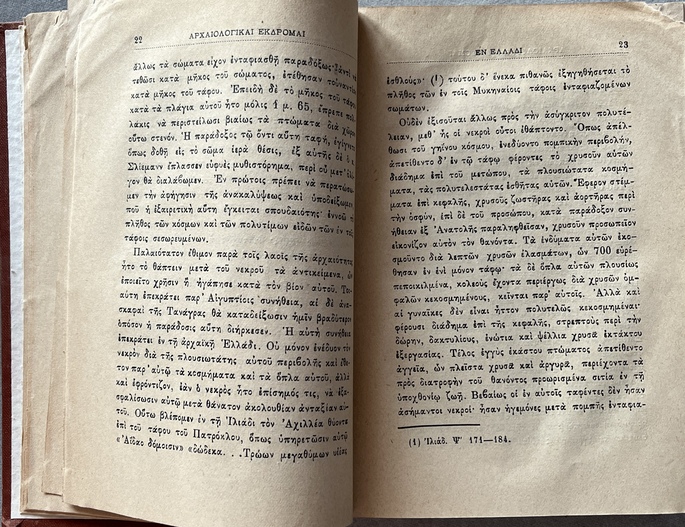 22
ΑΡΧΑΙΟΛΟΓΙΚΑΙ ΕΚΔΡΟΜΑΙ
ἄλλως τὰ σώματα εἶχον ἐνταφιασθῆ παραδόξως· ἀντὶ νὰ
τεθῶσι κατὰ μῆκος τοῦ σώματος, ἐτέθησαν τοὐναντίον
κατὰ μῆκος τοῦ τάφου. Ἐπειδὴ δὲ τὸ μῆκος τοῦ τάφου
κατὰ τὰ πλάγια αὐτοῦ ἦτο μόλις 1 μ. 65, ἔπρεπε πολ-
λάκις νὰ περιστείλωσι βιαίως τὰ πτώματα διὰ χῶρον
οὕτω στενόν. Ἡ παράδοξος τῷ ὄντι αὕτη ταφή, ἐγίνετο
ὅπως δοθῇ εἰς τὸ σῶμα ἱερὰ θέσις, ἐξ αὐτῆς δὲ ὁ κ.
Σλίεμανν ἔπλασσεν εὐφυὲς μυθιστόρημα, περὶ οὗ μετ' ὀλί-
γον θὰ διαλάβωμεν. Ἐν πρώτοις πρέπει νὰ περατώσω-
μεν τὴν ἀφήγησιν τῆς ἀνακαλύψεως καὶ ὑποδείξωμεν
ποῦ ἡ ἐξαιρετικὴ αὕτη ἔγκειται σπουδαιότης· ἐννοῶ τὸ
πλῆθος τῶν κόσμων καὶ τῶν πολυτίμων εἰδῶν τῶν ἐν τοῖς
τάφοις σεσωρευμένων.
Παλαιότατον ἔθιμον παρὰ τοῖς λαοῖς τῆς ἀρχαιότητος
ἦτο τὸ θάπτειν μετὰ τοῦ νεκροῦ τὰ ἀντικείμενα, ὧν
ἐποιεῖτο χρῆσιν ἢ ἠγάπησε κατὰ τὸν βίον αὐτοῦ. Τοι-
αύτη ἐπεκράτει παρ' Αἰγυπτίοις συνήθεια, αἱ δὲ ἀνα-
σκαφαὶ τῆς Τανάγρας θὰ καταδείξωσιν ἡμῖν βραδύτερον
ὁπόσον ἡ παράδοσις αὕτη διήρκεσεν. Ἡ αὐτὴ συνήθεια
ἐπεκράτει ἐν τῇ ἀρχαϊκῇ Ἑλλάδι. Οὐ μόνον ἐνέδυον τὸν
νεκρὸν διὰ τῆς πλουσιωτάτης αὐτοῦ περιβολῆς καὶ ἔθε-
τον παρ' αὐτῷ τὰ κοσμήματα καὶ τὰ ὅπλα αὐτοῦ, ἀλλὰ
καὶ ἐφρόντιζον, ἐὰν ὁ νεκρὸς ἦτο ἐπίσημός τις, νὰ ἐξα-
σφαλίσωσιν αὐτῷ μετὰ θάνατον ἀκολουθίαν ἀνταξίαν αὐ-
τοῦ. Οὕτω βλέπομεν ἐν τῇ Ἰλιάδι τὸν Ἀχιλλέα θύοντα
ἐπὶ τοῦ τάφου τοῦ Πατρόκλου, ὅπως ὑπηρετῶσιν αὐτῷ
«Ἀΐδαο δόμοισιν» «δώδεκα. . .Τρώων μεγαθύμων υἱέας
ΕΝ ΕΛΛΑΔΙ
23
ἐσθλούς»· (1) τούτου δ' ἕνεκα πιθανῶς ἐξηγηθήσεται τὸ
πλῆθος τῶν ἐν τοῖς Μυκηναίοις τάφοις ἐνταφιαζομένων
σωμάτων.
Οὐδὲν ἐξισοῦται ἄλλως πρὸς τὴν ἀσύγκριτον πολυτέ-
λειαν, μεθ' ἧς οἱ νεκροὶ οὗτοι ἐθάπτοντο. Ὅπως ἀπέλ-
θωσι τοῦ γηΐνου κόσμου, ἐνεδύοντο πομπικὴν περιβολήν,
ἀπετίθεντο δ' ἐν τῷ τάφῳ φέροντες τὸ χρυσοῦν αὐτῶν
διάδημα ἐπὶ τοῦ μετώπου, τὰ πλουσιώτατα κοσμή-
ματα, τὰς πολυτελεστάτας ἐσθῆτας αὐτῶν. Ἔφερον στέμ-
ματα ἐπὶ κεφαλῆς, χρυσοῦς ζωστῆρας καὶ ἀορτῆρας περὶ
τὴν ὀσφύν, ἐπὶ δὲ τοῦ προσώπου, κατὰ παράδοξον συν-
ήθειαν ἐξ Ἀνατολῆς παραληφθεῖσαν, χρυσοῦν προσωπεῖον
εἰκονίζον αὐτὸν τὸν θανόντα. Τὰ ἐνδύματα αὐτῶν ἐκο-
σμοῦντο διὰ λεπτῶν χρυσῶν ἐλασμάτων, ὧν 700 εὑρέ-
θησαν ἐν ἑνὶ μόνον τάφῳ· τὰ δὲ ὅπλα αὐτῶν πλουσίως
πεποικιλμένα, κολεοὺς ἔχοντα περιέργως διὰ χρυσῶν ὀμ-
φαλῶν κεκοσμημένους, κεῖνται παρ' αὐτοῖς. Ἀλλὰ καὶ
αἱ γυναῖκες δὲν εἶναι ἧττον πολυτελῶς κεκοσμημέναι·
φέρουσι διάδημα ἐπὶ τῆς κεφαλῆς, στρεπτοὺς περὶ τὴν
δώρην, δακτυλίους, ἐνώτια καὶ ψέλλια χρυσᾶ ἐκτάκτου
ἐξεργασίας. Τέλος ἐγγὺς ἑκάστου πτώματος ἀπετίθεντο
ἀγγεῖα, ὧν πλεῖστα χρυσᾶ καὶ ἀργυρᾶ, περιέχοντα τὰ
πρὸς διατροφὴν τοῦ θανόντος προωρισμένα σιτία ἐν τῇ
ὑποχθονίῳ ζωῇ. Βεβαίως οἱ ἐν αὐτοῖς ταφέντες δὲν ἦσαν
ἀσήμαντοι νεκροί· ἦσαν ἡγεμόνες μετὰ πομπῆς ἐνταφια-
(1) Ἰλιάδ. Ψ' 171—184.